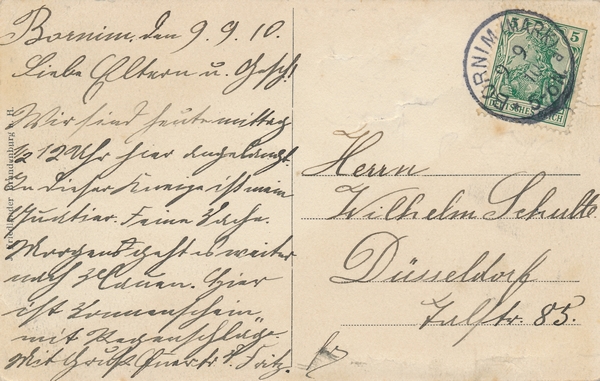 Bornim, den 9.9.10.
Liebe Eltern u. Gesch!
Wir sind heute mittag
1/2 12 Uhr hier angelangt.
In dieser Kneipe ist mein
Quartier. Feine Sache.
Morgens geht es weiter
nach Hier
ist Sonnenschein
mit Regenschläge
Mit Gruß Euer Fritz.
Friedlieder Brandenburg a. H.
BORNIM (MARK)
9 9 10
5
DEUTSCHES REICH
Herrn
Wilhelm Schulte
Düsseldorf
Talstr. 85.